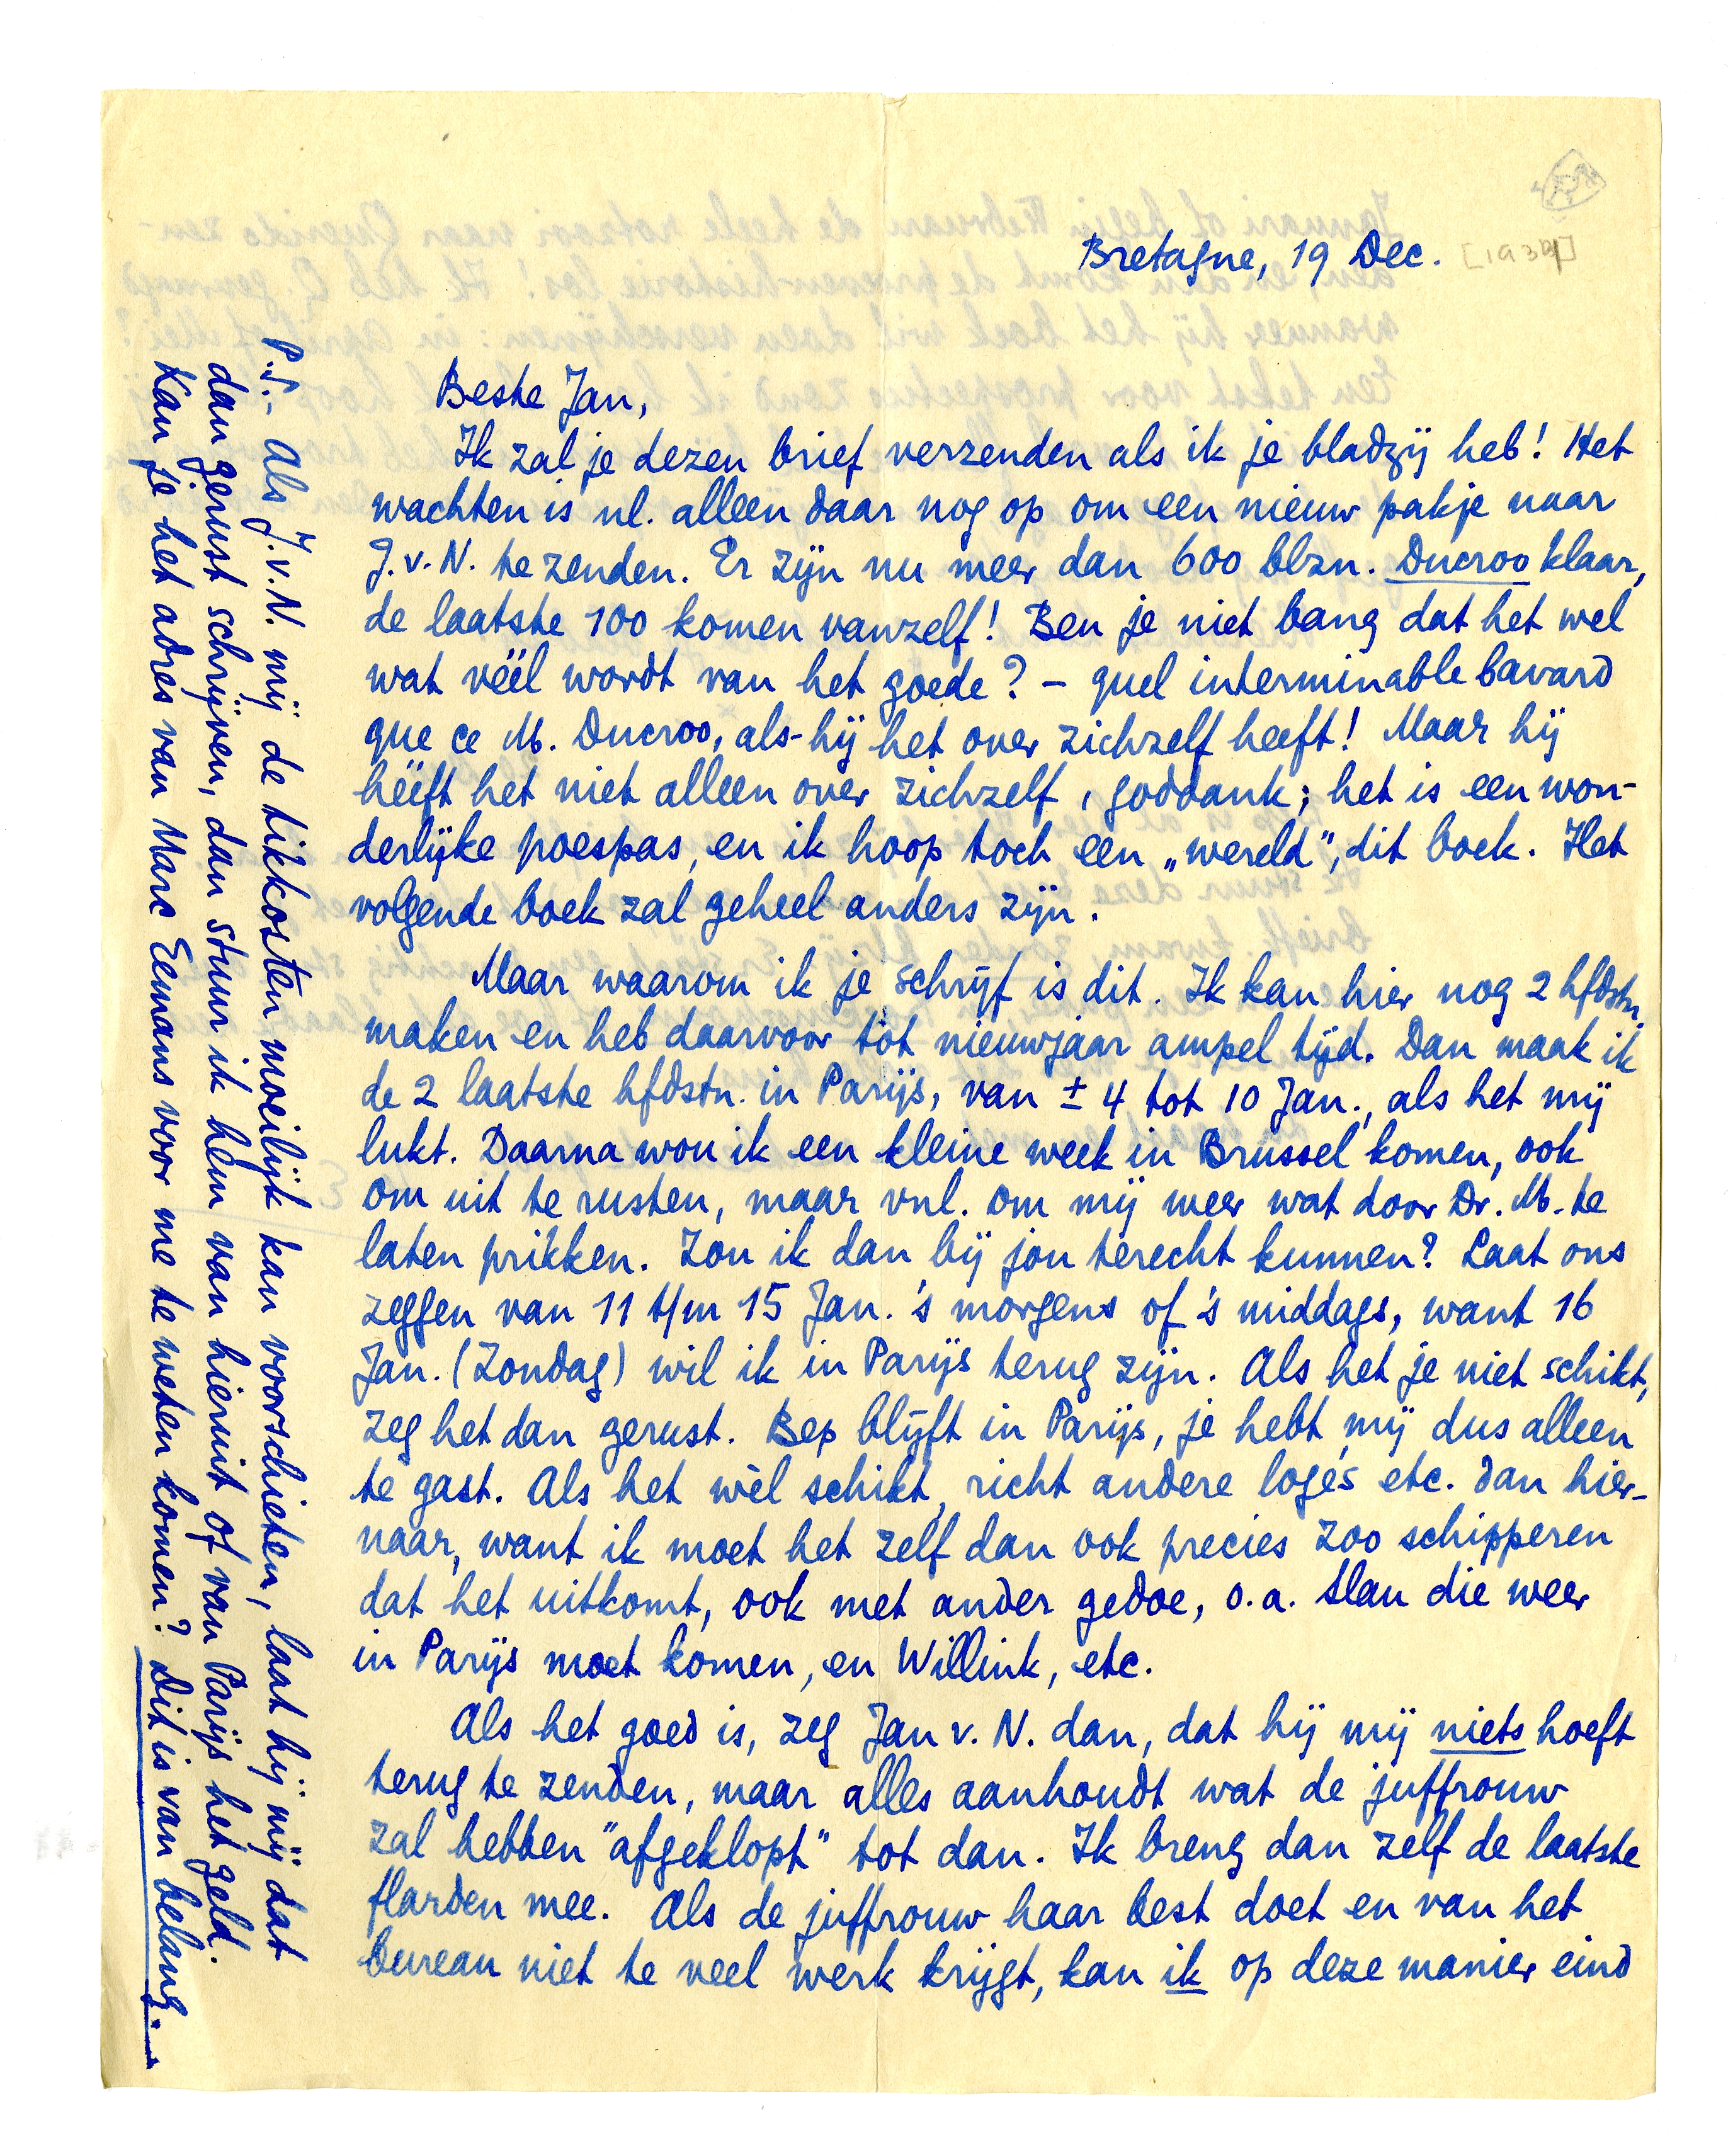 Bretagne, 19 Dec. [1934]
Beste Jan,
Ik zal je dezen brief verzenden als ik je bladzij heb! Het
wachten is nl. alleen daar nog op om een nieuw pakje naar
J.v.N. te zenden. Er zijn nu meer dan 600 blzn. Ducroo klaar,
de laatste 100 komen vanzelf! Ben je niet bang dat het wel
wat véél wordt van het goede? – quel interminable bavard
que ce M. Ducroo, als hij het over zichzelf heeft! Maar hij
hééft het niet alleen over zichzelf, goddank; het is een won-
derlijke poespas, en ik hoop toch een „wereld", dit boek. Het
volgende boek zal geheel anders zijn.
Maar waarom ik je schrijf is dit. Ik kan hier nog 2 hfdstn.
maken en heb daarvoor tot nieuwjaar ampel tijd. Dan maak ik
de 2 laatste hfdstn. in Parijs, van ± 4 tot 10 Jan., als het mij
lukt. Daarna wou ik een kleine week in Brussel komen, ook
om uit te rusten, maar vnl. om mij weer wat door Dr. M. te
laten prikken. Zou ik dan bij jou terecht kunnen? Laat ons
zeggen van 11 t/m 15 Jan. 's morgens of 's middags, want 16
Jan. (Zondag) wil ik in Parijs terug zijn. Als het je niet schikt,
zeg het dan gerust. Bep blijft in Parijs, je hebt mij dus alleen
te gast. Als het wèl schikt, richt andere logés etc. dan hier-
naar, want ik moet het zelf dan ook precies zoo schipperen
dat het uitkomt, ook met ander gedoe, o.a. Slau die weer
in Parijs moet komen, en Willink, etc.
Als het goed is, zeg Jan v. N. dan, dat hij mij niets hoeft
terug te zenden, maar alles aanhoudt wat de juffrouw
zal hebben "afgeklopt" tot dan. Ik breng dan zelf de laatste
flarden mee. Als de juffrouw haar best doet en van het
bureau niet te veel werk krijgt, kan ik op deze manier eind
P.S.- Als J.v.N. mij de tikkosten moeilijk kan voorschieten, laat hij mij dat
dan gerust schrijven, dan stuur ik hem van hieruit of van Parijs het geld.
Kan je het adres van Marc Eemans voor me te weten komen? Dit is van belang.